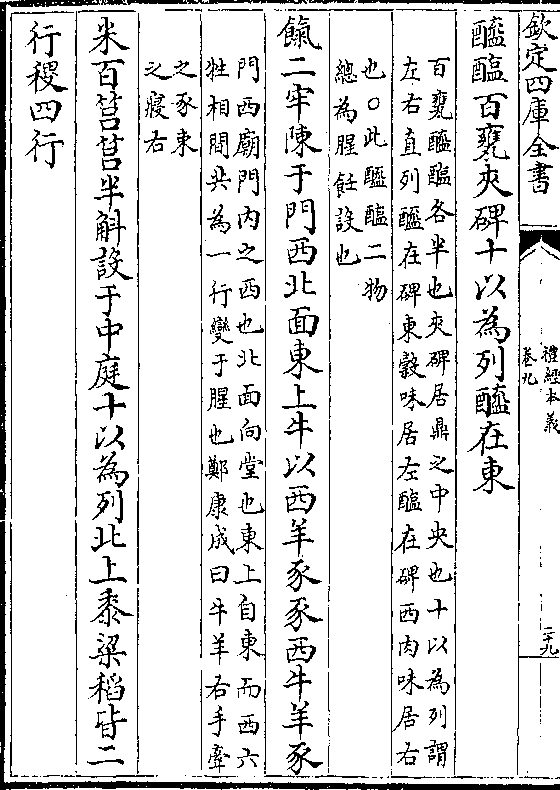 欽定四庫全書
禮經本義
卷九
二十九
醯醢百甕夾碑十以為列醯在東
百甕醯醢各半也夾碑居鼎之中央也十以為列謂
左右直列醯在碑東穀味居左醢在碑西肉味居右
也○此醯醢二物
總為腥飪設也
餼二牢陳于門西北面東上牛以西羊豕豕西牛羊豕
門西廟門內之西也北面向堂也東上自東而西六
牲相間共為一行變于腥也鄭康成曰牛羊右手牽
之豕束
之寢右
米百筥筥半斛設于中庭十以為列北上黍梁稻皆二
行稷四行